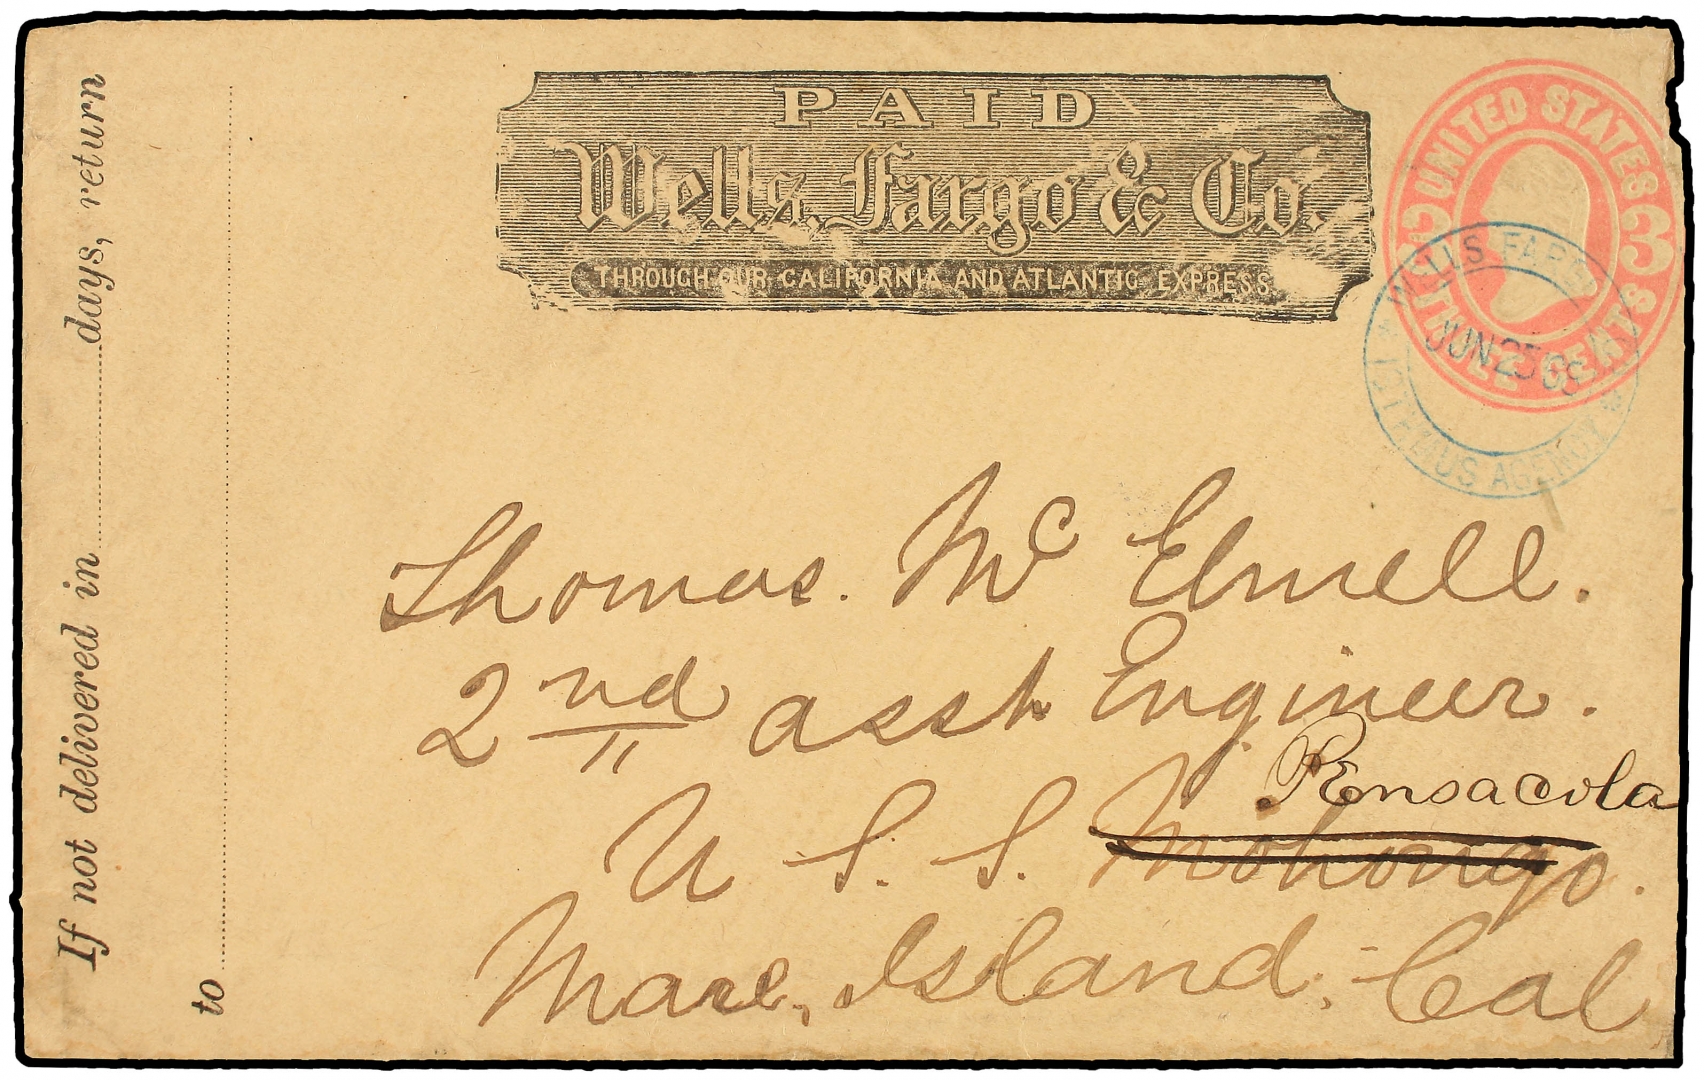 If not delivered in ........ days, return
to ........
PAID
Wells, Fargo & Co.
THROUGH OUR CALIFORNIA AND ATLANTIC EXPRESS
UNITED STATES
3 3
THREE CENTS
WELLS FARGO
JUN 25
AGENCY
Thomas. Mc Elmell.
2nd asst Engineer.
Pensacola
U. S. S. Mohongo.
Mare, Island, Cal